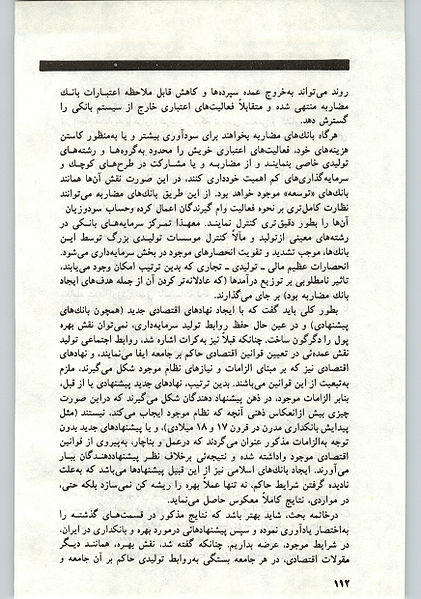 روند می‌تواند به‌خروج عمده سپرده‌ها و کاهش قابل ملاحظه اعتبارات بانك
مضاربه منتهی شده و متقابلاً فعالیت‌های اعتباری خارج از سیستم بانکی را
گسترش دهد.
هرگاه بانك‌های مضاربه بخواهند برای سودآوری بیشتر و یا به‌منظور کاستن
هزینه‌های خود، فعالیت‌های اعتباری خویش را محدود به‌گروه‌ها و رشته‌های
تولیدی خاصی بنمایند و از مضاربه و یا مشارکت در طرح‌های کوچك و
سرمایه‌گذاری‌های کم اهمیت خودداری کنند، در این صورت نقش آن‌ها همانند
بانك‌های «توسعه» موجود خواهد بود. از این طریق بانك‌های مضاربه می‌توانند
نظارت کامل‌تری بر نحوه فعالیت وام گیرندگان اعمال کرده وحساب سودوزیان
آن‌ها را بطور دقیق‌تری کنترل نمایند. معهذا تمرکز سرمایه‌های بانکی در
رشته‌های معینی ازتولید و مآلاً کنترل موسسات تولیدی بزرگ توسط این
بانك‌ها، موجب تشدید و تقویت انحصارهای موجود در بخش سرمایه‌داری می‌شود.
انحصارات عظیم مالی ـ تولیدی ـ تجاری که بدین ترتیب امکان وجود می‌یابند،
تاثیر نامطلوبی بر توزیع درآمدها (که عادلانه‌تر کردن آن از جمله هدف‌های ایجاد
بانك مضاربه بود) بر جای می‌گذارند.
بطور کلی باید گفت که با ایجاد نهادهای اقتصادی جدید (همچون بانك‌های
پیشنهادی) و در عین حال حفظ روابط تولید سرمایه‌داری، نمی‌توان نقش بهره
پول را دگرگون ساخت. چنانکه قبلاً نیز به‌کرات اشاره شد، روابط اجتماعی تولید
نقش عمده‌ئی در تعیین قوانین اقتصادی حاکم بر جامعه ایفا می‌نمایند، و نهادهای
اقتصادی نیز که بر مبنای الزامات و نیازهای نظام موجود شکل می‌گیرند، ملزم
به‌تبعیت از این قوانین می‌باشند. بدین ترتیب، نهادهای جدید پیشنهادی یا از قبل،
بنابر الزامات موجود، در ذهن پیشنهاد دهندگان شکل می‌گیرند که دراین صورت
چیزی بیش ازانعکاس ذهنی آنچه که نظام موجود ایجاب می‌کند، نیستند (مثل
پیدایش بانکداری مدرن در قرون ۱۷ و ۱۸ میلادی)، و یا پیشنهادهای جدید بدون
توجه به‌الزامات مذکور عنوان می‌گردند که درعمل و بناچار، به‌پیروی از قوانین
اقتصادی موجود واداشته شده و نتیجه‌ئی برخلاف نظر پیشنهاددهندگان ببار
می‌آورند. ایجاد بانك‌های اسلامی نیز از این قبیل پیشنهادها می‌باشد که به‌علت
نادیده گرفتن شرایط حاکم، نه تنها عملاً بهره را ریشه کن نمی‌سازد بلکه حتی،
در مواردی، نتایج کاملاً معکوس حاصل می‌نماید.
درخاتمه بحث، شاید بهتر باشد که نتایج مذکور در قسمت‌های گذشته را
به‌اختصار یادآوری نموده و سپس پیشنهادهائی درمورد بهره و بانکداری در ایران،
در شرایط موجود، عرضه بداریم. چنانکه گفته شد، نقش بهره، همانند دیگر
مقولات اقتصادی، در هر جامعه بستگی به‌روابط تولیدی حاکم بر آن جامعه و
۱۱۲